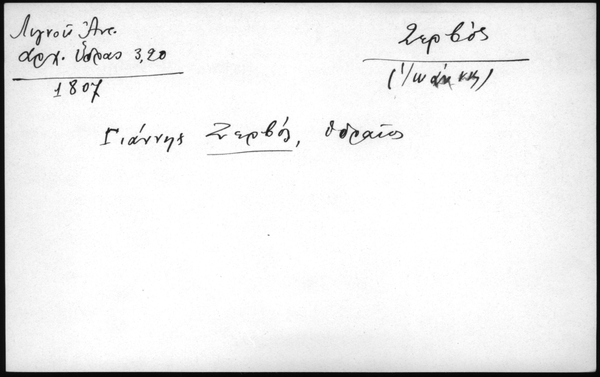 Λιγνοῦ Ἀντ.
ἀρχ. Ὕδρας 3,20
1807
Σερβός
(Ἰωάννης)
Γιάννης Σερβός, Ὑδραῖος